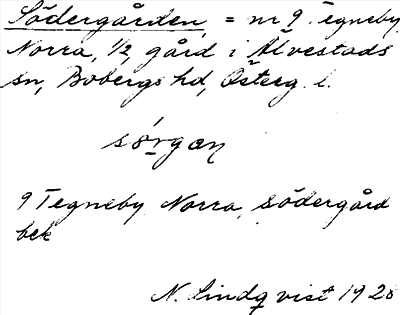 Södergården, = nr 9 Tegneby
Norra, 1/2, gård i Älvestads
sn, Bobergs hd, Österg. l.
sørgan
9 Tegneby Norra, Södergård
bek
N. Lindqvist 1925